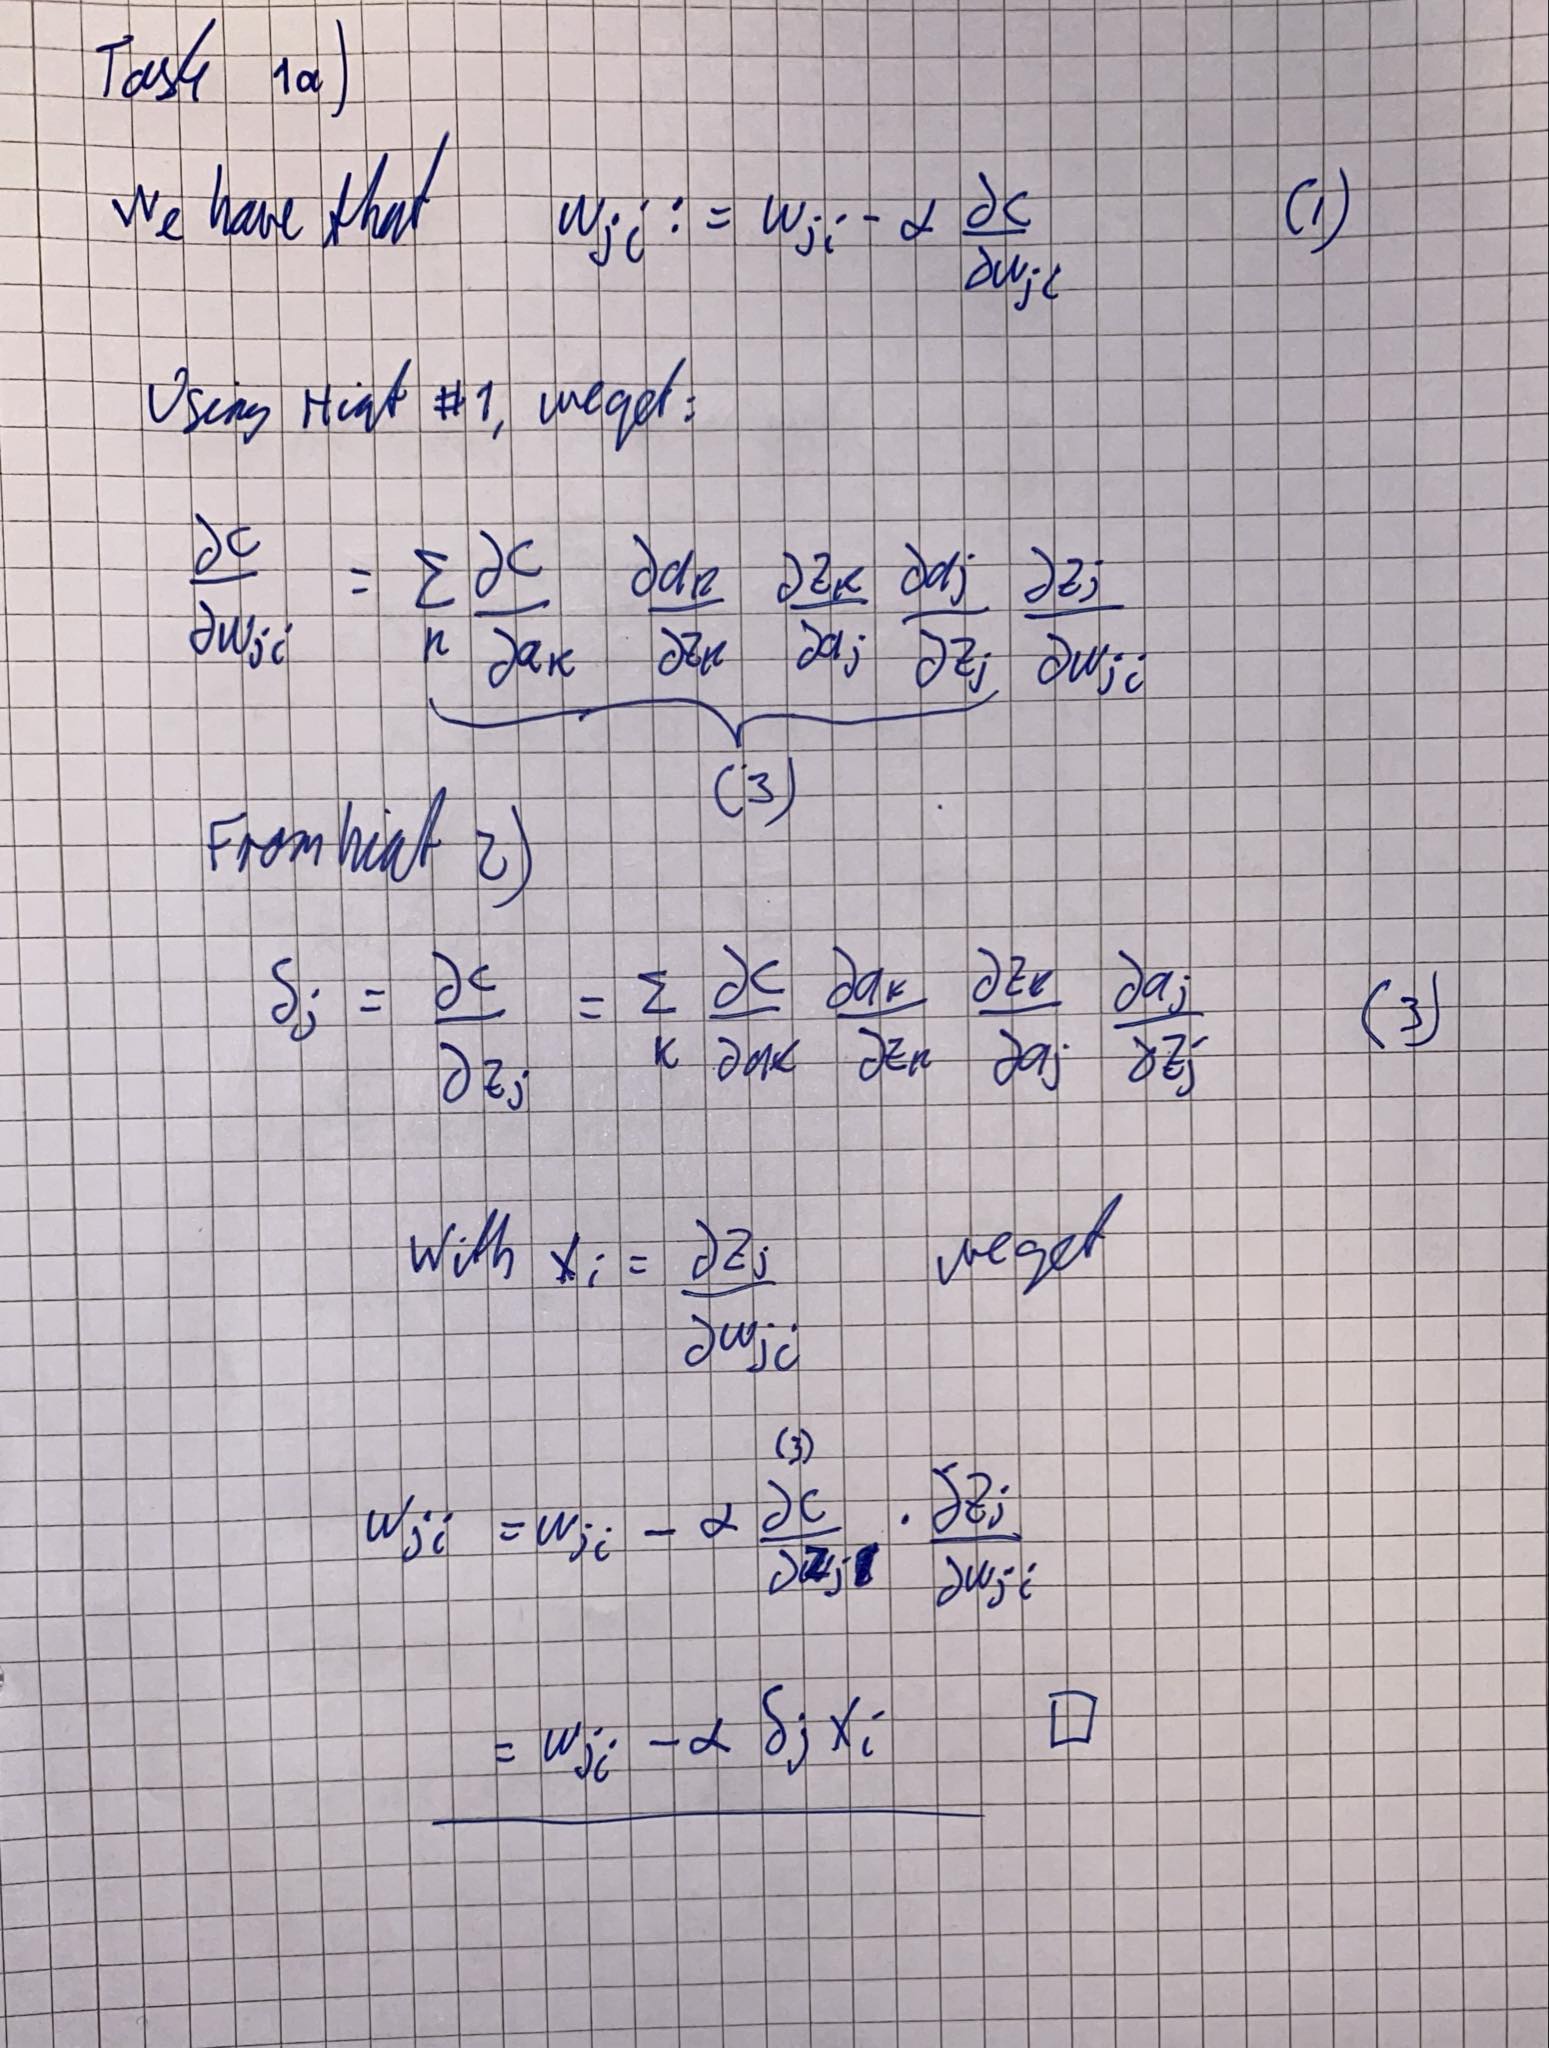 Task 1a)
We have that w_ji := w_ji - α ∂C/∂w_ji (1)
Using Hint #1, we get:
∂C/∂w_ji = Σ_k ∂C/∂a_k ∂a_k/∂z_k ∂z_k/∂a_j ∂a_j/∂z_j ∂z_j/∂w_ji
(3)
From hint 2)
δ_j = ∂C/∂z_j = Σ_k ∂C/∂a_k ∂a_k/∂z_k ∂z_k/∂a_j ∂a_j/∂z_j (3)
With x_i = ∂z_j/∂w_ji we get
(3)
w_ji = w_ji - α ∂C/∂z_j · ∂z_j/∂w_ji
= w_ji - α δ_j x_i □